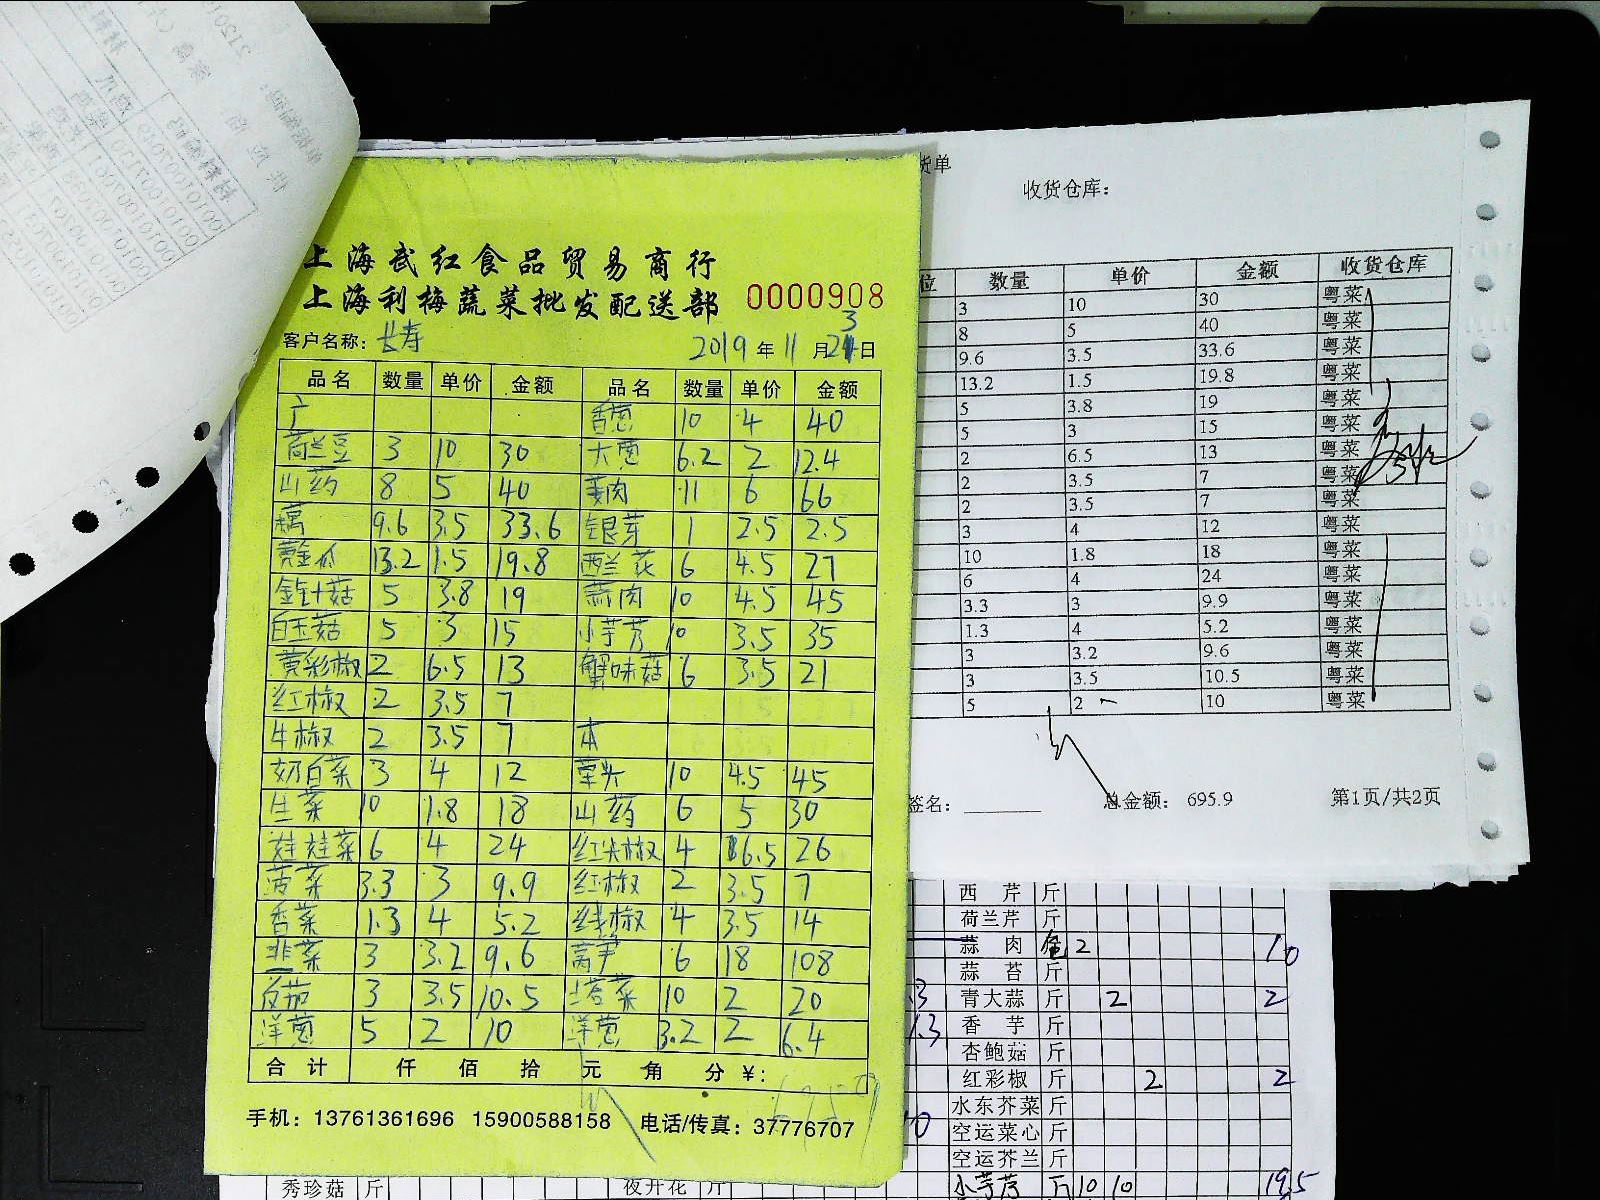 上海武红食品贸易商行
上海利梅蔬菜批发配送部 0000908
客户名称: 长寿 2019年11月23日
品名 数量 单价 金额 品名 数量 单价 金额
广 香葱 10 4 40
荷兰豆 3 10 30 大葱 6.2 2 12.4
山药 8 5 40 姜肉 11 6 66
藕 9.6 3.5 33.6 银芽 1 2.5 2.5
黄瓜 13.2 1.5 19.8 西兰花 6 4.5 27
金针菇 5 3.8 19 蒜肉 10 4.5 45
白玉菇 5 3 15 小芋艿 10 3.5 35
黄彩椒 2 6.5 13 蟹味菇 6 3.5 21
红椒 2 3.5 7
牛椒 2 3.5 7 本
奶白菜 3 4 12 草头 10 4.5 45
生菜 10 1.8 18 山药 6 5 30
娃娃菜 6 4 24 红尖椒 4 6.5 26
菠菜 3.3 3 9.9 红椒 2 3.5 7
香菜 1.3 4 5.2 线椒 4 3.5 14
韭菜 3 3.2 9.6 莴笋 6 18 108
反茄 3 3.5 10.5 塔菜 10 2 20
洋葱 5 2 10 洋葱 3.2 2 6.4
合计 仟 佰 拾 元 角 分 ¥: 695.9
手机: 13761361696 15900588158 电话/传真: 37776707
货单
收货仓库:
位 数量 单价 金额 收货仓库
3 10 30 粤菜
8 5 40 粤菜
9.6 3.5 33.6 粤菜
13.2 1.5 19.8 粤菜
5 3.8 19 粤菜
5 3 15 粤菜
2 6.5 13 粤菜
2 3.5 7 粤菜
2 3.5 7 粤菜
3 4 12 粤菜
10 1.8 18 粤菜
6 4 24 粤菜
3.3 3 9.9 粤菜
1.3 4 5.2 粤菜
3 3.2 9.6 粤菜
3 3.5 10.5 粤菜
5 2 10 粤菜
签名: 总金额: 695.9 第1页/共2页
西芹 斤
荷兰芹 斤
蒜肉 包 2 10
蒜苔 斤
青大蒜 斤 2 2
香芋 斤
杏鲍菇 斤
红彩椒 斤 2 2
水东芥菜 斤
空运菜心 斤
空运芥兰 斤
小芋艿 斤 10 10 19.5
秀珍菇 斤 夜开花 斤